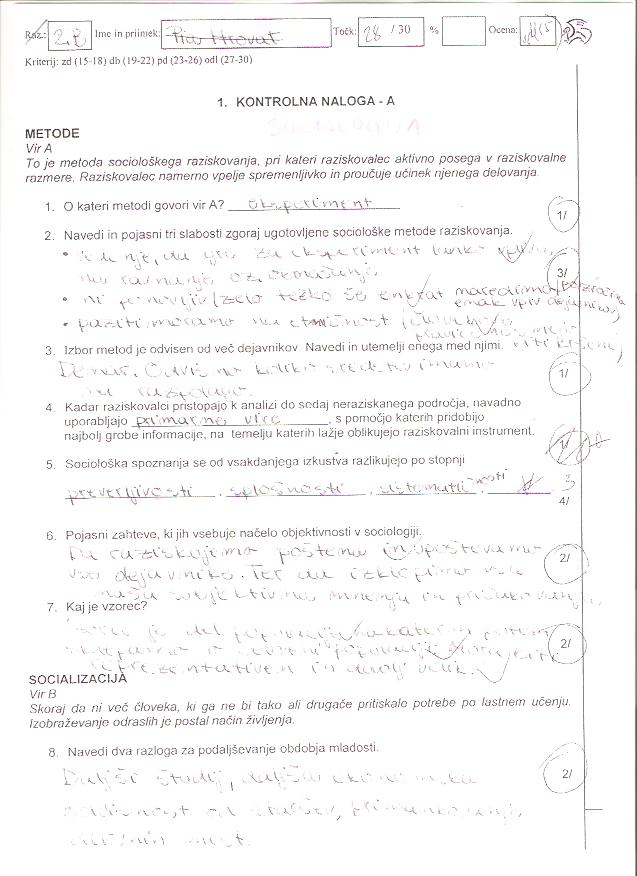 Raz.: 2.B Ime in priimek: Pia Hrovat Točk: 28 / 30 % Ocena:
Kriterij: zd (15-18) db (19-22) pd (23-26) odl (27-30)
1. KONTROLNA NALOGA - A
SOCIOLOGIJA
METODE
Vir A
To je metoda sociološkega raziskovanja, pri kateri raziskovalec aktivno posega v raziskovalne
razmere. Raziskovalec namerno vpelje spremenljivko in proučuje učinek njenega delovanja.
1. O kateri metodi govori vir A? eksperiment
1/
2. Navedi in pojasni tri slabosti zgoraj ugotovljene sociološke metode raziskovanja.
da gre za eksperiment lahko
3/
• ni ponovljiv/zelo težko še enkrat naredimo
• paziti moramo na etičnost
3. Izbor metod je odvisen od več dejavnikov. Navedi in utemelji enega med njimi.
Denar. na koliko sredstev imamo
na razpolago.
1/
4. Kadar raziskovalci pristopajo k analizi do sedaj neraziskanega področja, navadno
uporabljajo primarne vire, s pomočjo katerih pridobijo
najbolj grobe informacije, na temelju katerih lažje oblikujejo raziskovalni instrument.
1/
5. Sociološka spoznanja se od vsakdanjega izkustva razlikujejo po stopnji
preverljivosti, splošnosti, sistematičnosti
3
4/
6. Pojasni zahteve, ki jih vsebuje načelo objektivnosti v sociologiji.
Da raziskujemo pošteno in upoštevamo
vse dejavnike. Ter da izklopimo vsa
naša subjektivna mnenja in pričakovanja.
2/
7. Kaj je vzorec?
Vzorec je del populacije, na katerem potem
sklepamo o celotni populaciji. Mora biti
reprezentativen in dovolj velik.
2/
SOCIALIZACIJA
Vir B
Skoraj da ni več človeka, ki ga ne bi tako ali drugače pritiskalo potrebe po lastnem učenju.
Izobraževanje odraslih je postal način življenja.
8. Navedi dva razloga za podaljševanje obdobja mladosti.
Daljši študij, daljša ekonomska
odvisnost od staršev, primanjkovanje
delovnih mest.
2/